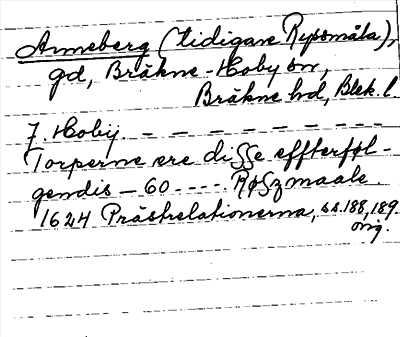 Anneberg (tidigare Rysmåla),
gd, Bräkne-Hoby sn,
Bräkne hd, Blek. l.
J. Hoby. – – – – – – – –
Torperne ere disse effterføl-
gendis – 60 ---- Røszmaale.
1624 Prästrelationerna, s.s. 188, 189.
orig.